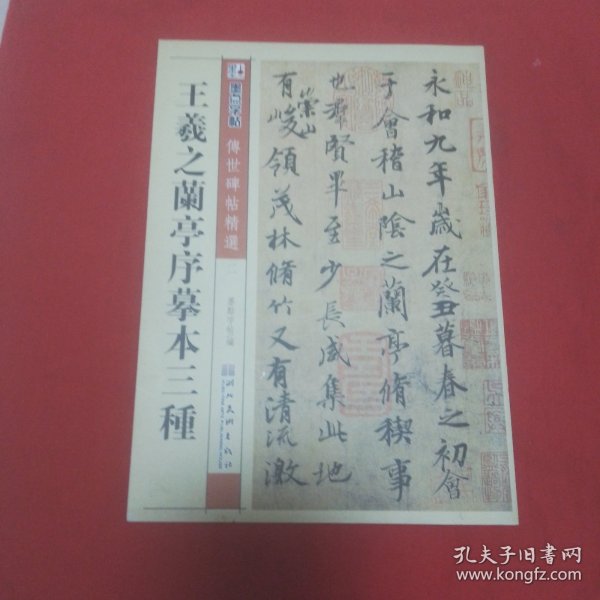 王羲之蘭亭序摹本三種
墨点字帖
傳世碑帖精選
二
墨點字帖編
湖北美術出版社
永和九年歲在癸丑暮春之初會
于會稽山陰之蘭亭脩禊事
也羣賢畢至少長咸集此地
有崇山峻領茂林脩竹又有清流激
孔夫子旧书网
www.kongfz.com